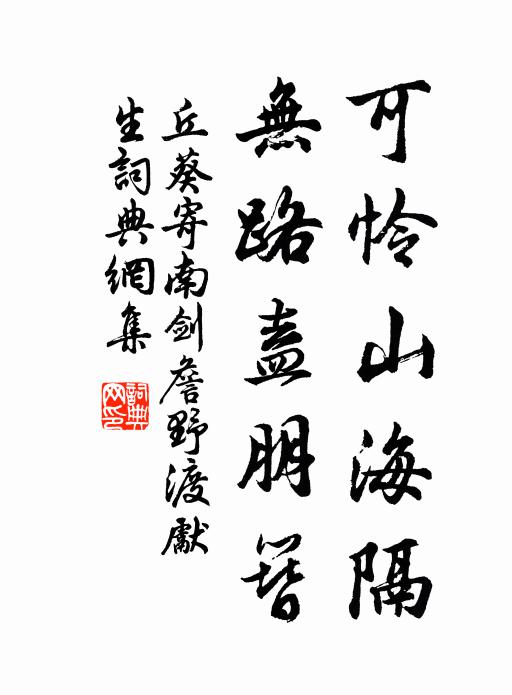 可怜山海隔
無路盍朋簪
丘葵寄南剑詹野渡獻
生詞典網集
詞典
网印